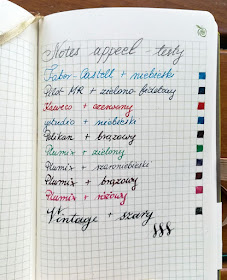 Notes appeel - testy
Faber-Castell + niebieski
Pilot MR + zielono-fioletowy
Kaweco + czerwony
ystudio + niebieski
Pelikan + brązowy
Plumix + zielony
Plumix + szaroniebieski
Plumix + brązowy
Plumix + różowy
Vintage + szary